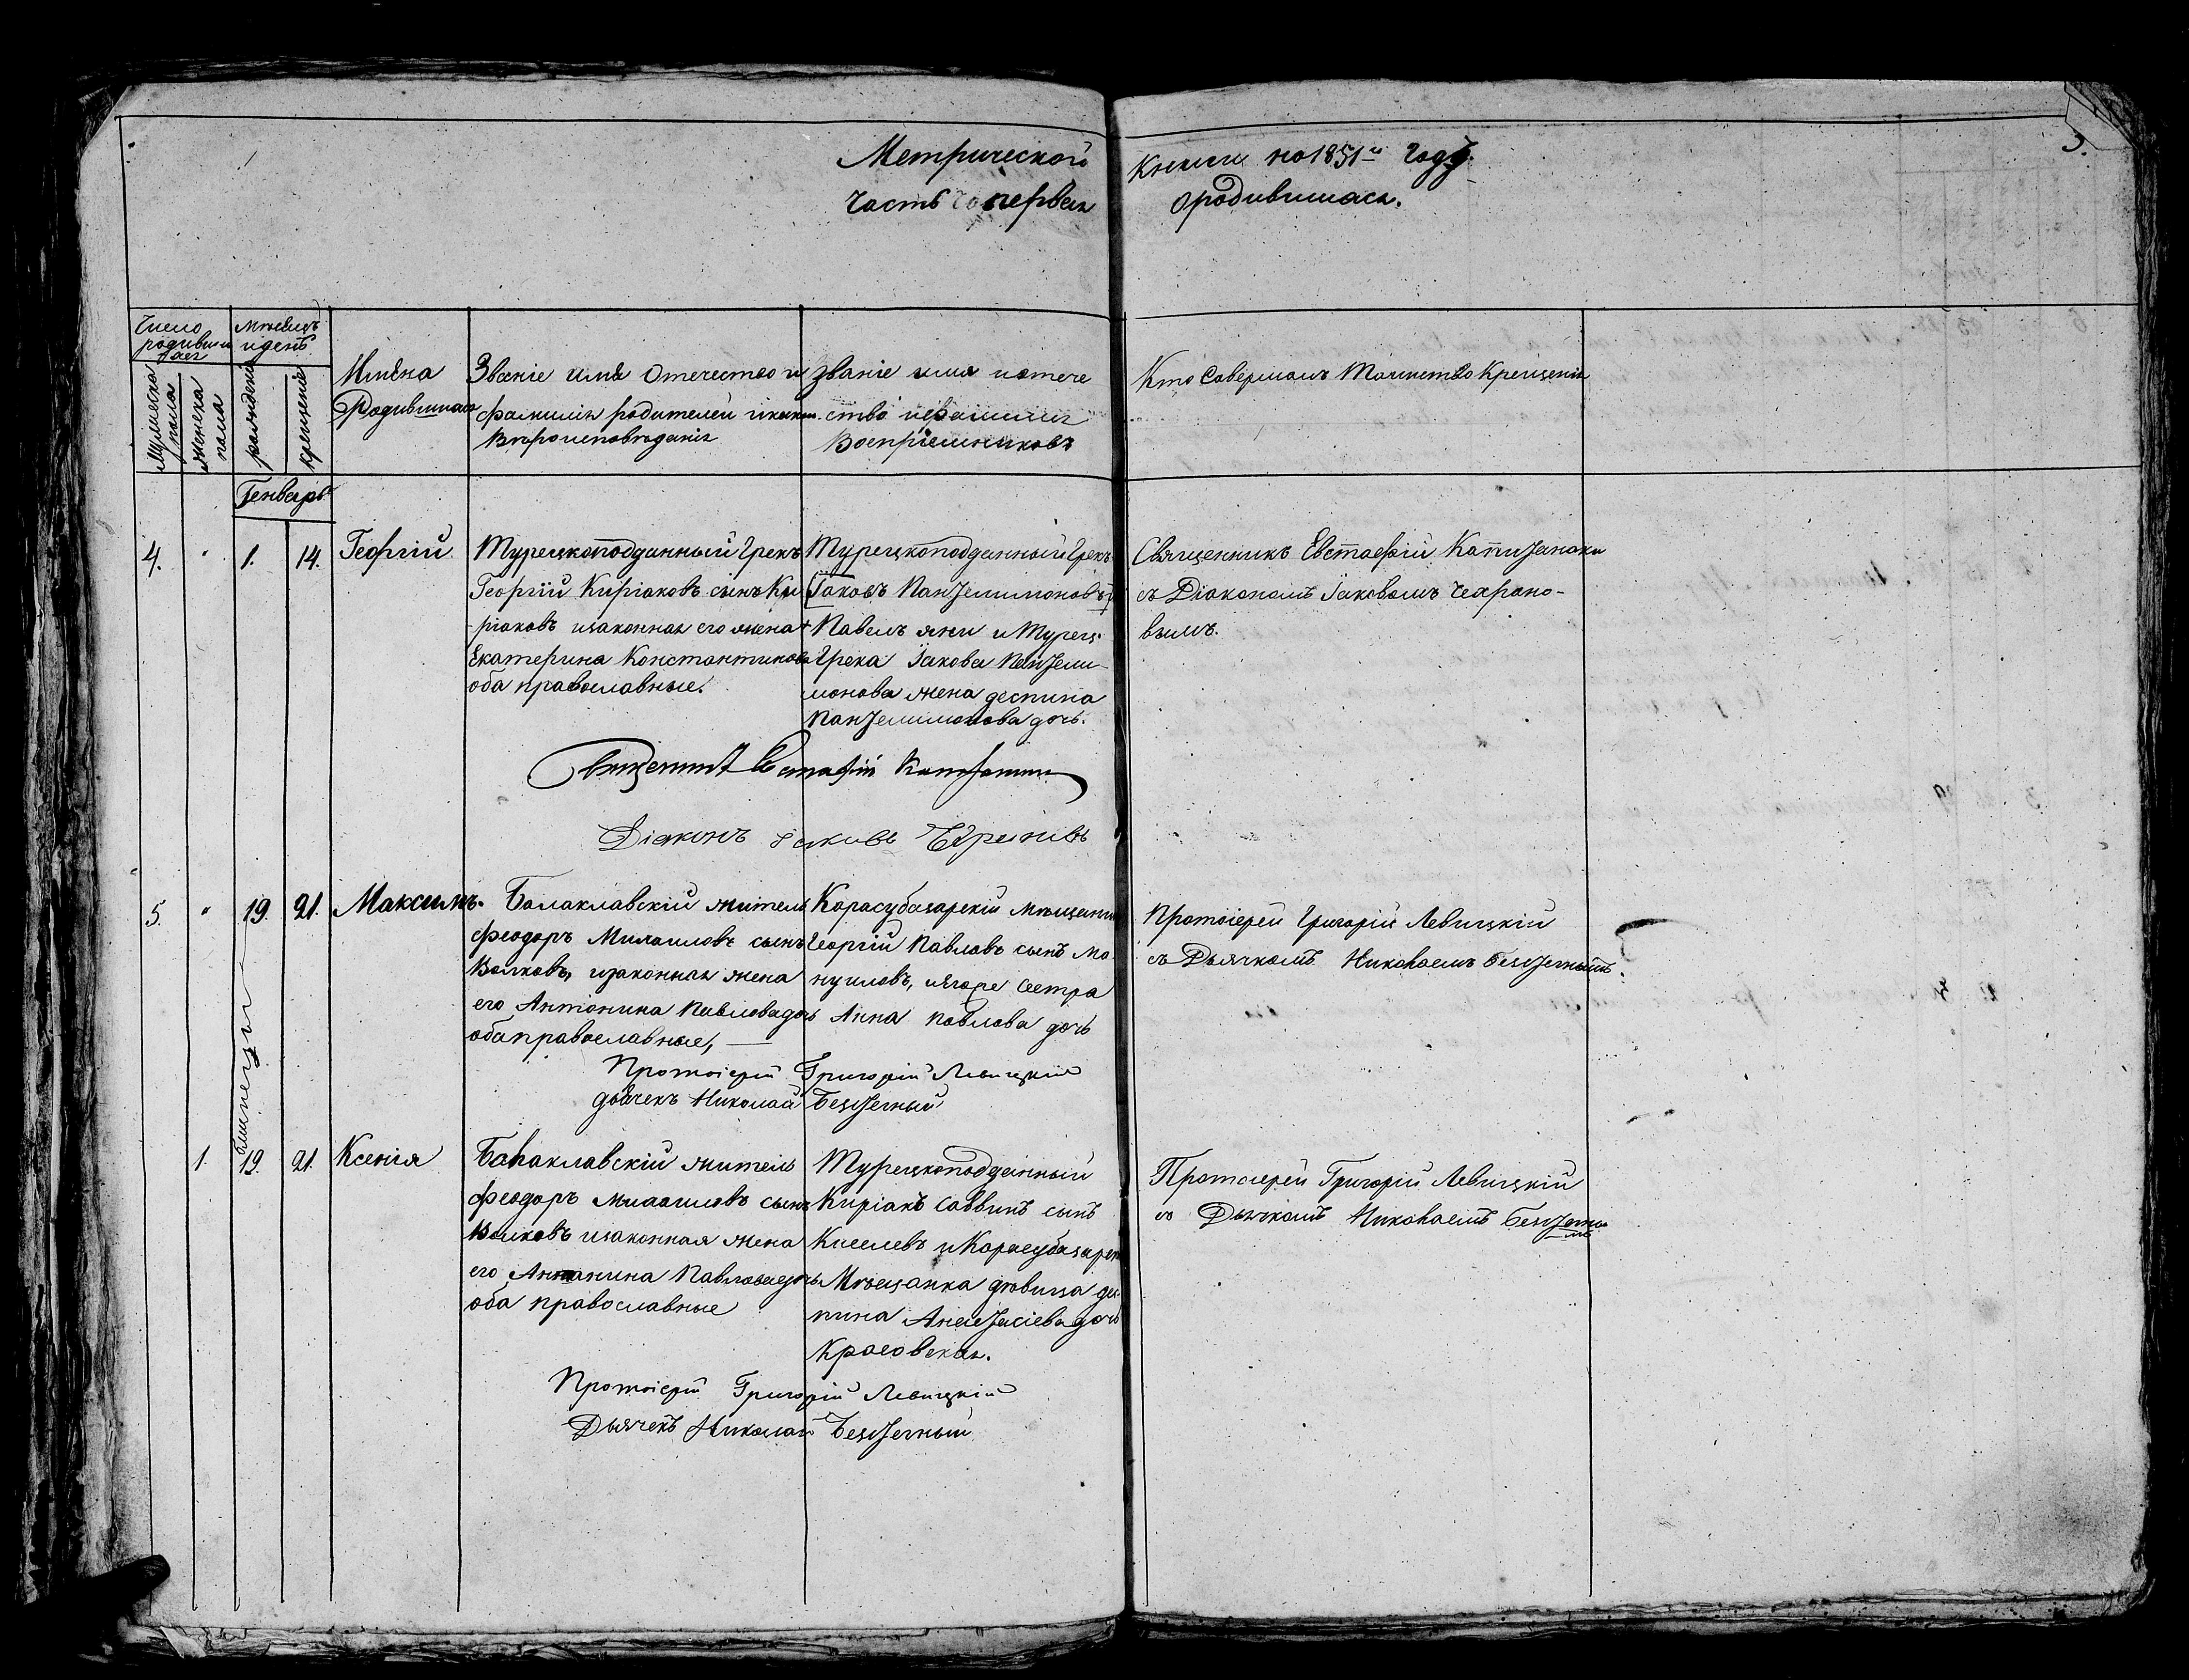 Метрической книги на 1851й годъ.
3.
Часть первая о родившихся.
Число родивших ся
Мѣсяцъ и день
Мужеска пола
Женска пола
рожденіе
крещеніе
Имена Родившихся
Званіе имя Отечество и
фамилія родителей и какого
Вѣроисповѣданія
Званіе имя и отече
ство и фамилія
Воспріемниковъ
Кто Совершалъ Таинство Крещенія
Генварь
4. " 1. 14. Георгій
Турецкоподданный Грекъ
Георгій Киріаковъ сынъ Ки
ріаковъ и законная его жена
Екатерина Константинова
оба православные.
Турецкоподданный Грекъ
[Іаковъ Пантелимоновъ]
+ Павелъ яни и Турец.
Грека Іакова Пантели
монова жена деспина
Пантелимонова дочь.
Священникъ Евстафій
съ Діакономъ Іаковомъ Чехрано-
вымъ.
Священникъ Евстафій
Діаконъ Іаковъ
5. " 19. 21. Максимъ.
Балаклавскій житель
Феодоръ Михаиловъ сынъ
Волковъ, и законная жена
его Антонина Павлова дочь
оба православные,
Карасубазарскій Мѣщанинъ
Георгій Павловъ сынъ Ма
нуиловъ, и Сестра
Анна Павлова дочь
Протоіерей Григорій Левицкій
съ Дьячкомъ Николаемъ Безсчетнымъ.
Протоіерей Григорій Левицкій
дьячекъ Николай Безсчетный
близнецы
1. 19. 21. Ксенія
Балаклавскій житель
Феодоръ Михаиловъ сынъ
Волковъ и законная жена
его Антонина Павлова дочь
оба православные
Турецкоподданный
Киріакъ Саввинъ сынъ
Киселевъ и Карасубазарск
Мѣщанка дѣвица дес
пина Анастасіева дочь
Красовская.
Протоіерей Григорій Левицкій
съ Дьячкомъ Николаемъ Безсчетны
мъ
Протоіерей Григорій Левицкій
Дьячекъ Николай Безсчетный